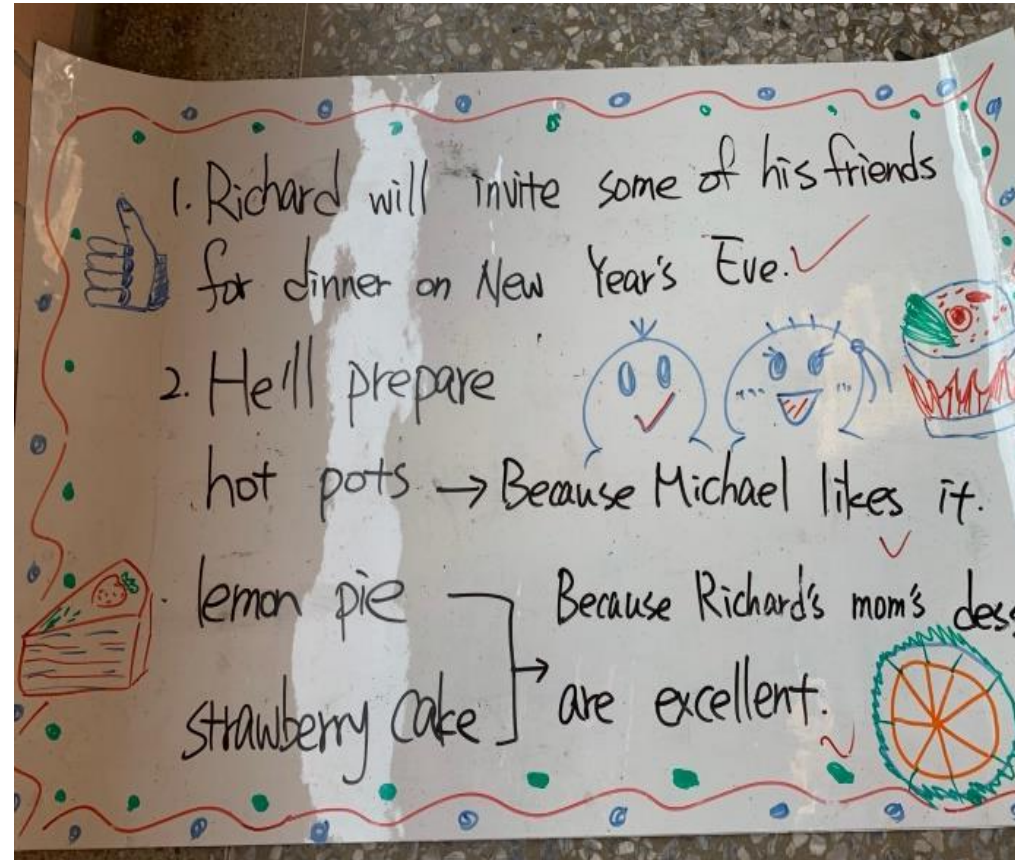 1. Richard will invite some of his friends
for dinner on New Year's Eve.
2. He'll prepare
hot pots → Because Michael likes it.
lemon pie Because Richard's mom's
strawberry cake → are excellent.